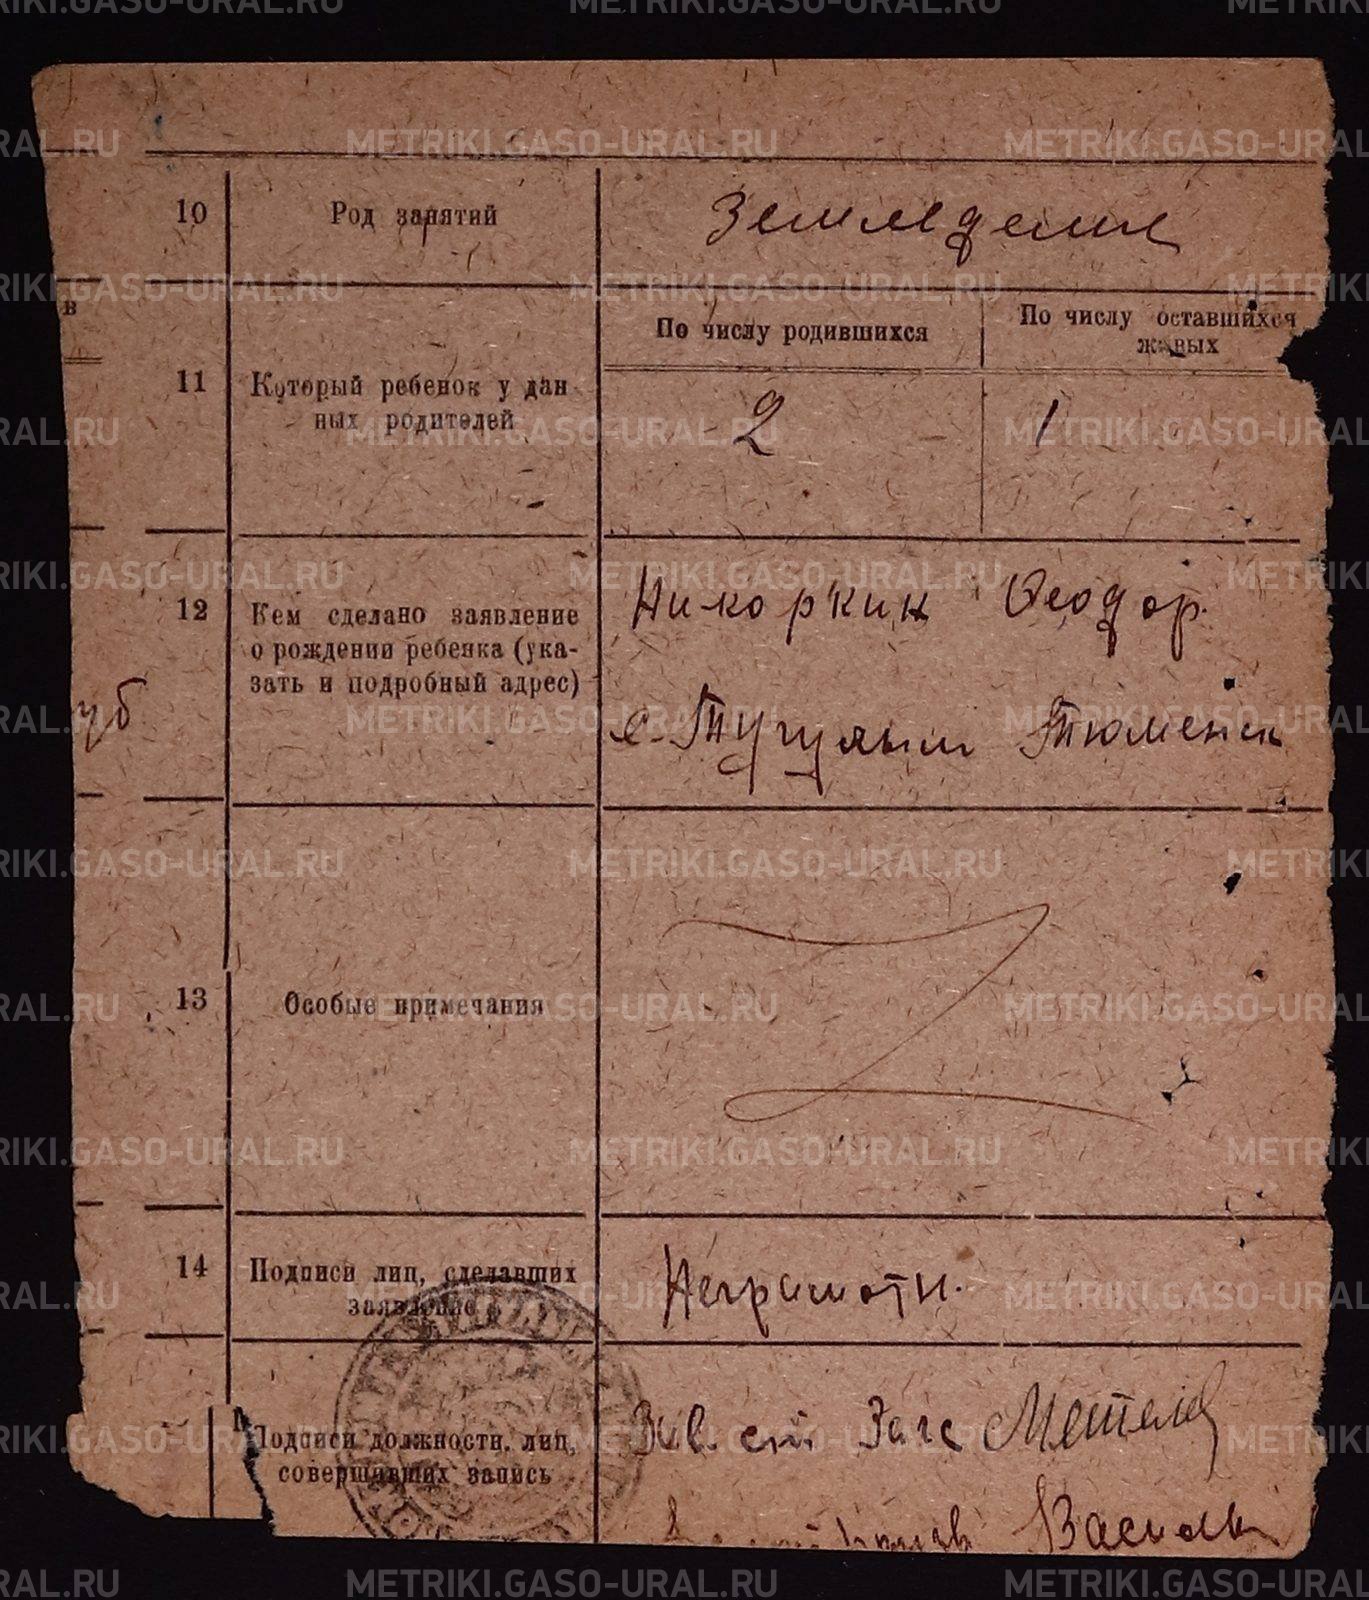 10 Род занятий Земледелие
в
По числу родившихся По числу оставшихся
живых
11 Который ребенок у дан
ных родителей
2 1
12 Кем сделано заявление
о рождении ребенка (ука-
зать и подробный адрес)
Никоркин Феодор.
с. Тугулым Тюменск
уб
13 Особые примечания
14 Подписи лиц, сделавших
заявление
Неграмотн.
Подписи должности. лиц,
совершивших запись
Зав. ст Загс Метелев
METRIKI.GASO-URAL.RU